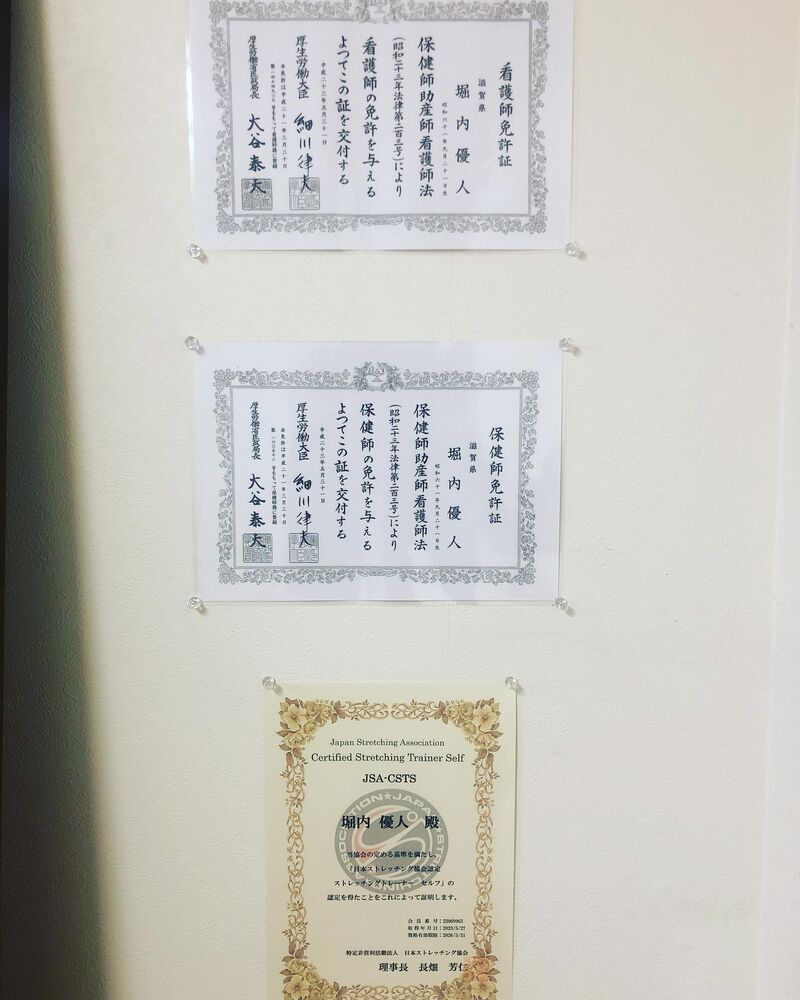 看護師免許証
滋賀県
堀内優人
昭和六十一年九月二十一日生
保健師助産師看護師法
(昭和二十三年法律第二百三号)により
看護師の免許を与える
よつてこの証を交付する
平成二十三年五月三十一日
厚生労働大臣 細川律夫
本免許は平成二十一年三月三十日
号をもって看護師籍に登録
厚生労働省医政局長 大谷泰夫
保健師免許証
滋賀県
堀内優人
昭和六十一年九月二十一日生
保健師助産師看護師法
(昭和二十三年法律第二百三号)により
保健師の免許を与える
よつてこの証を交付する
平成二十三年五月三十一日
厚生労働大臣 細川律夫
本免許は平成二十一年三月三十日
号をもって保健師籍に登録
厚生労働省医政局長 大谷泰夫
Japan Stretching Association
Certified Stretching Trainer Self
JSA-CSTS
堀内 優人 殿
当協会の定める基準を満たし、
「日本ストレッチング協会認定
ストレッチングトレーナー セルフ」の
認定を得たことをこれによって証明します。
会員番号:23069963
取得年月日:2023/5/27
資格有効期限:2026/5/31
特定非営利活動法人 日本ストレッチング協会
理事長 長畑 芳仁